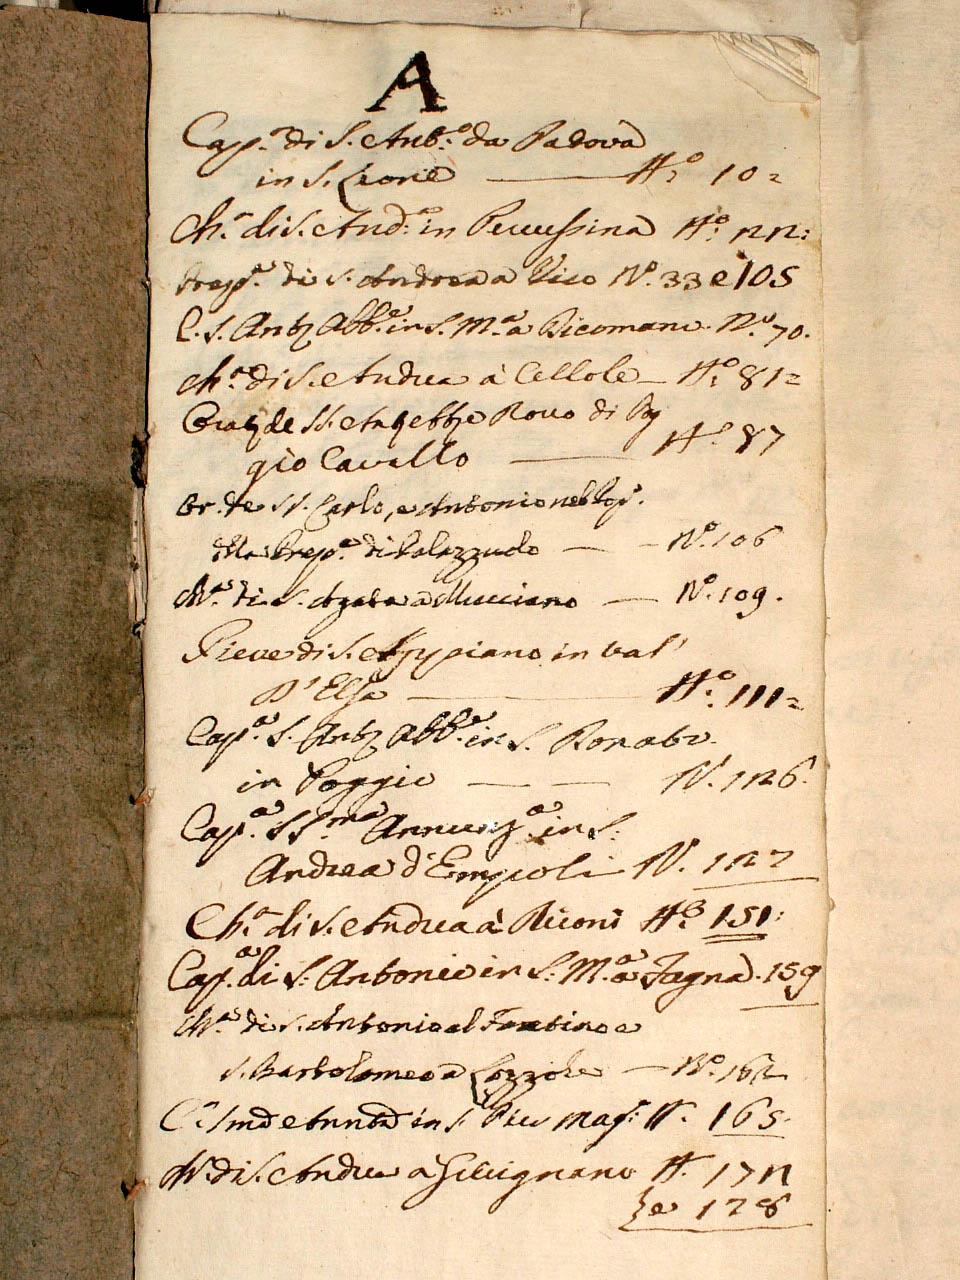 A
Cap.ª di S. Ant.º da Padova
in S. Leone N.º 10
Ch.ª di S. And.ª in Percussina N.º 22:
di S. Andrea a Vico N.º 33 e 105
C. S. Ant.º Abb.e in S. M.ª a Bicomano. N.º 70.
Ch.ª di S. Andrea à Cellole N.º 81
de SS. Rocco di Pog
gio Cavallo N.º 87
Or. de SS. Carlo, e Antonio nel Pop.
della Prep.ª di Palazzuolo N.º 106
Ch.ª di S. Agata a Mucciano N.º 109.
Pieve di S. Appiano in Val'
D' Elsa N.º 111
Cap.ª S. Ant.º Abb.e in S. Donato
in Poggio N. 126.
Cap.ª SS.ma Annunz.ª in S.
Andrea d'Empoli N. 127
Ch.ª di S. Andrea à N.º 151:
Cap.ª di S. Antonio in S. M.ª a Fagna. 159
Ch.ª di S. Antonio al e
S. Bartolomeo a Lozzole N.º 162
C.ª in S. Pier Mag.e N. 165.
Ch.ª di S. Andrea a Gavignano N. 172
e 178